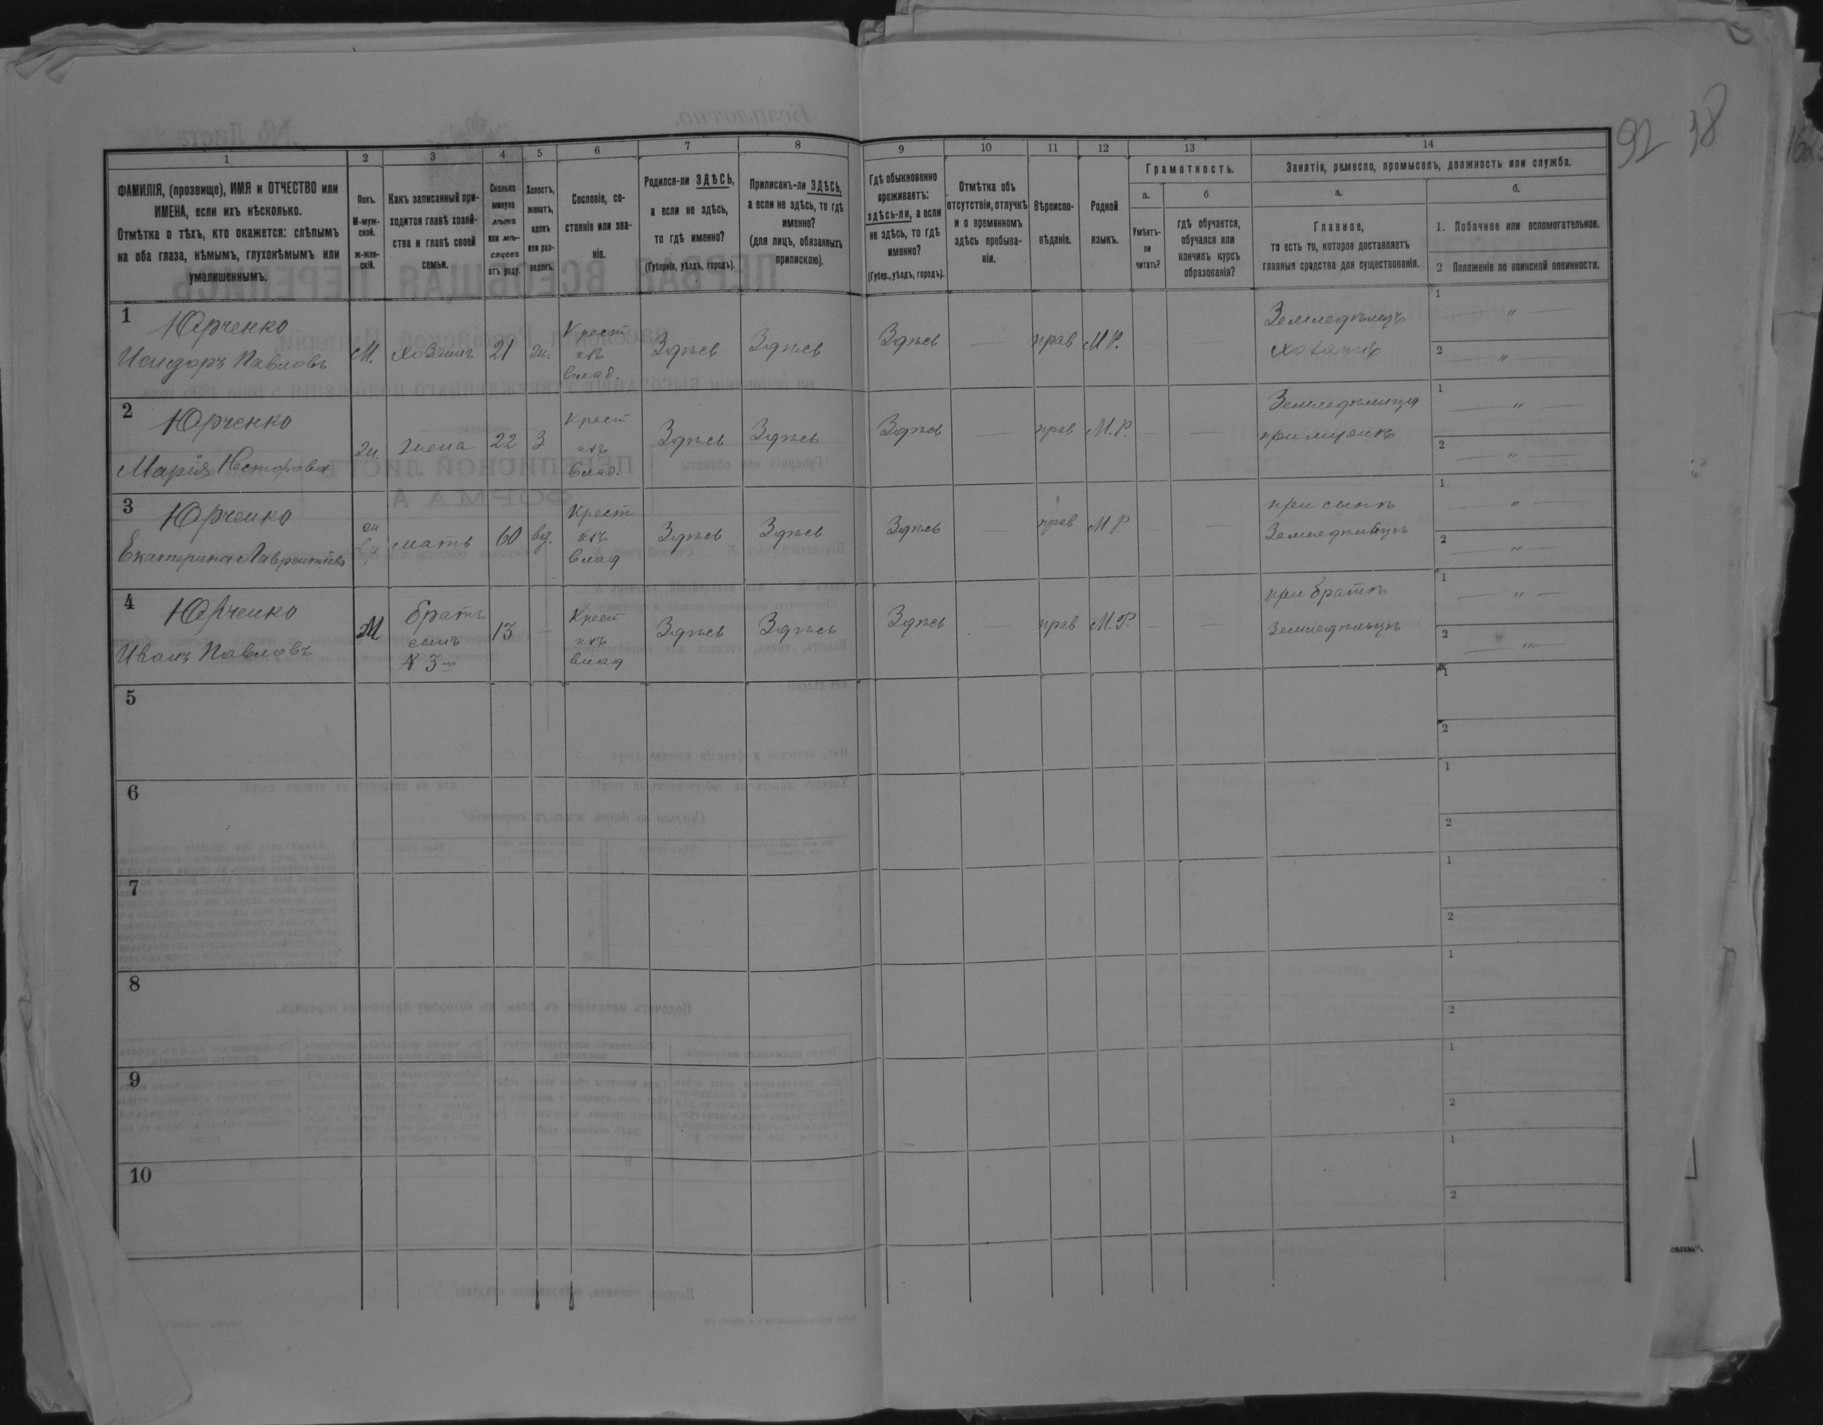 92 38
1 2 3 4 5 6 7 8 9 10 11 12 13 14
ФАМИЛІЯ, (прозвище), ИМЯ и ОТЧЕСТВО или
ИМЕНА, если ихъ нѣсколько.
Отмѣтка о тѣхъ, кто окажется: слѣпымъ
на оба глаза, нѣмымъ, глухонѣмымъ или
умалишеннымъ.
Полъ.
М-муж-
ской.
Ж-жен-
скій.
Какъ записанный при-
ходится главѣ хозяй-
ства и главѣ своей
семьи.
Сколько
минуло
лѣтъ
или мѣ-
сяцевъ
отъ роду.
Холостъ,
женатъ,
вдовъ
или раз-
веденъ.
Сословіе, со-
стояніе или зва-
ніе.
Родился-ли ЗДѢСЬ,
а если не здѣсь,
то гдѣ именно?
(Губернія, уѣздъ, городъ).
Приписанъ-ли ЗДѢСЬ,
а если не здѣсь, то гдѣ
именно?
(для лицъ, обязанныхъ
припискою).
Гдѣ обыкновенно
проживаетъ:
здѣсь-ли, а если
не здѣсь, то гдѣ
именно?
(Губер., уѣздъ, городъ).
Отмѣтка объ
отсутствіи, отлучкѣ
и о временномъ
здѣсь пребыва-
ніи.
Вѣроиспо-
вѣданіе.
Родной
языкъ.
Грамотность.
а.
Умѣетъ-
ли
читать?
б.
гдѣ обучается,
обучался или
кончилъ курсъ
образованія?
Занятія, ремесло, промыселъ, должность или служба.
а.
Главное,
то есть то, которое доставляетъ
главныя средства для существованія.
б.
1. Побочное или вспомогательное.
2 Положеніе по воинской повинности.
1 Юрченко
Исидоръ Павловъ
М. хозяинъ 21 Крест
влад.
Здѣсь Здѣсь Здѣсь — прав М Р. — —
Земледѣлецъ
хозяинъ
1 "
2 "
2 Юрченко
Марія Несторова
жена 22 З Крест
влад.
Здѣсь Здѣсь Здѣсь — прав М.Р. — —
1 "
2 "
3 Юрченко
Екатерина
мать 60 вд. Крест
влад
Здѣсь Здѣсь Здѣсь — прав М Р. —
при сынѣ
1 "
2 "
4 Юрченко
Иванъ Павловъ
М братъ
сынъ
№ 3-
13 — Крест
влад
Здѣсь Здѣсь Здѣсь — прав М.Р. — —
при братѣ
Земледѣлецъ
1 "
2 "
5 1
2
6 1
2
7 1
2
8 1
2
9 1
2
10 1
2